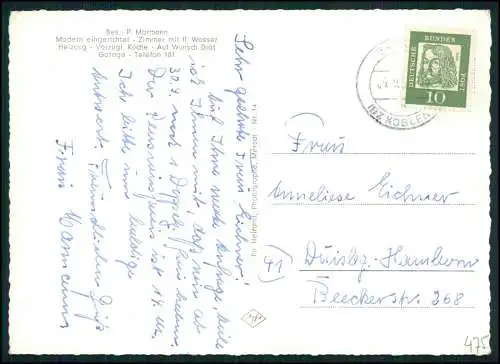 Bes.: P. Mormann
Modern eingerichtet - Zimmer mit fl. Wasser
Heizung - Vorzügl. Küche - Auf Wunsch Diät
Garage - Telefon 181
Sehr geehrte Frau Eichner!
Auf Ihre werte Anfrage, teile
ich Ihnen mit, daß wir ab
30.7. noch 1 Doppelz. frei haben.
Der Pensionspreis ist 14 DM.
Ich bitte um baldige
Antwort. Freundlichen Gruß
Frau
Nr. 14
DEUTSCHE BUNDESPOST
10
KOBLENZ
Frau
Anneliese Eichner
(41) Duisbg.-Hamborn
Beeckerstr. 268
475